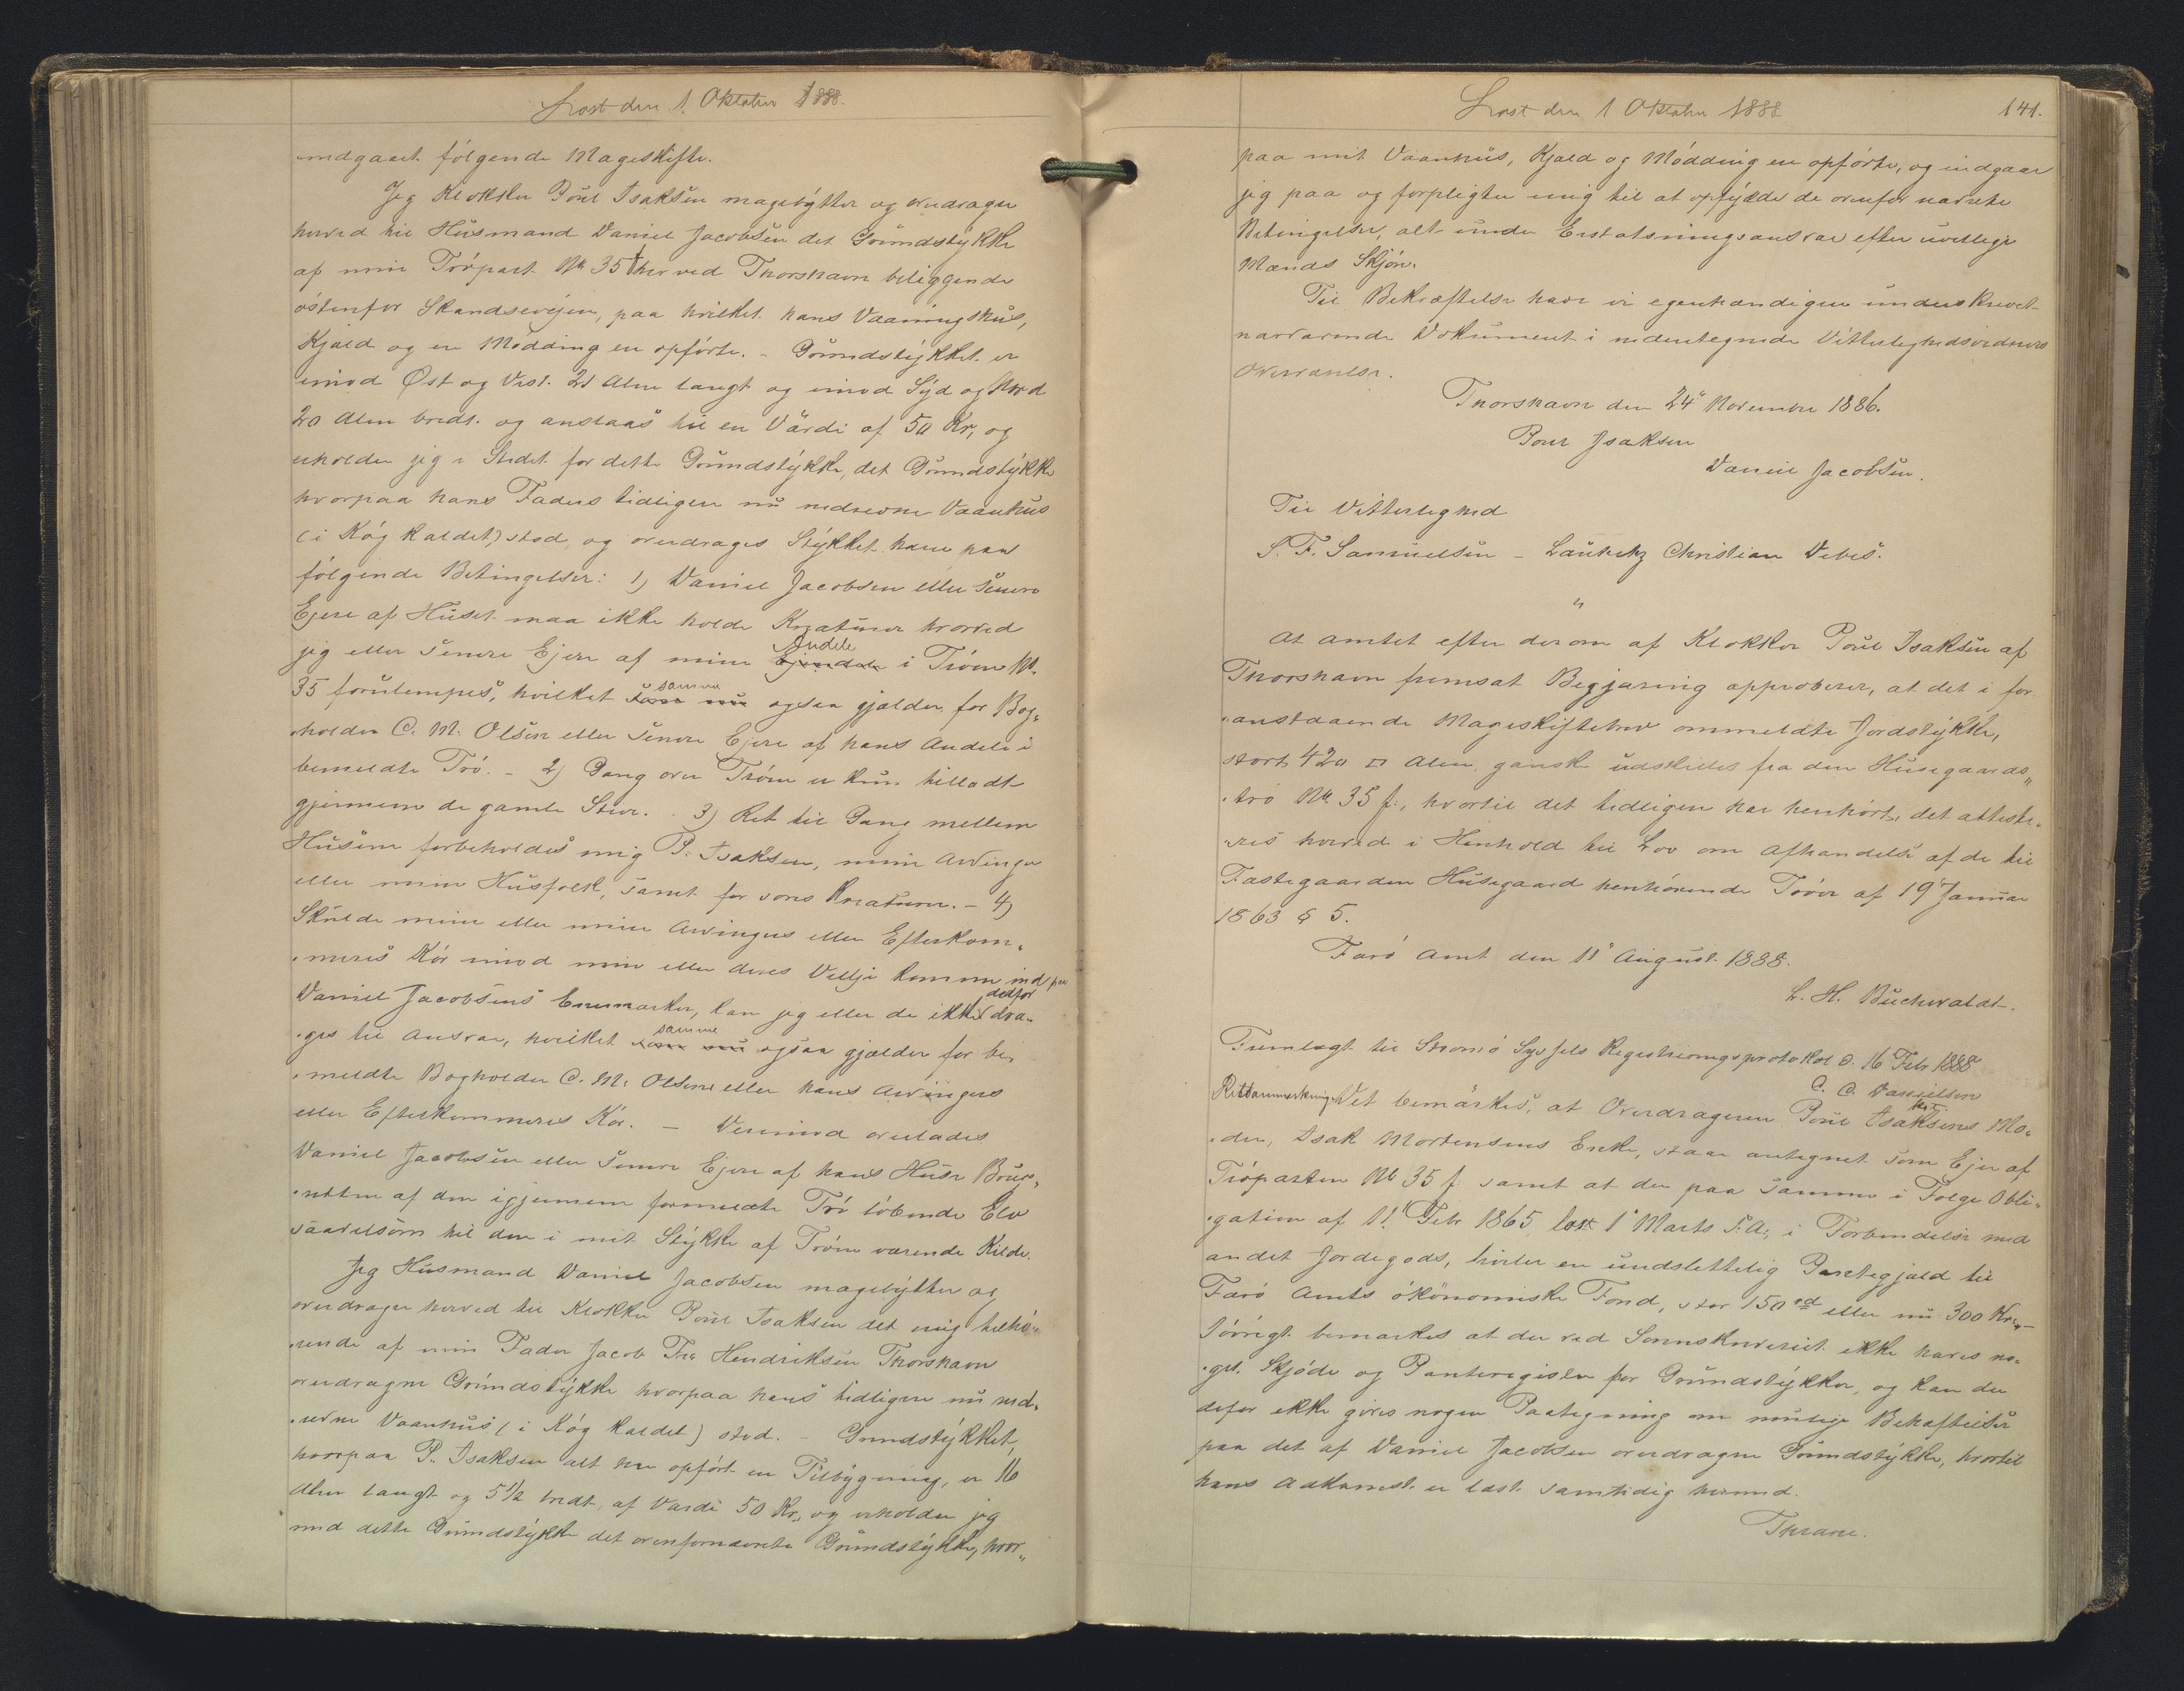 Læst den 1. Oktober 1888.
indgaaet følgende Mageskifte.
Jeg Klokker Poul Isaksen magebytter og overdrager
herved til Husmand Daniel Jacobsen det Grundstykke
af min Tröpart No 35 f her ved Thorshavn beliggende
östenfor Skandsevejen, paa hvilket hans Vaaningshus,
Kjald og en Mödding er opförte. - Grundstykket er
imod Øst og Vest. 21 Alen langt og imod Syd og Nord
20 Alen bredt. og anslaas til en Värdi af 50 Kr, og
erholder jeg i Stedet for dette Grundstykke, det Grundstykke
hvorpaa hans Faders tidligere nu nedrevne Vaanhus
(i Kög kaldet) stod, og overdrages Stykket ham paa
fölgende Betingelser: 1) Daniel Jacobsen eller senere
Ejere af Huset maa ikke holde Kreaturer hvorved
jeg eller senere Ejere af mine Ejendele Andele i Tröen No.
35 forulempes, hvilket samme ogsaa gjælder for Bog-
holder C. M. Olsen eller senere Ejere af hans Andele i
bemeldte Trö. - 2) Gang over Tröen er kun tilladt
gjennem de gamle Stier. . 3) Ret til Gang mellem
Husene forbeholdes mig P. Isaksen, mine Arvinger
eller mine Husfolk, samt for vores Kreaturer. - 4)
Skulde mine eller mine Arvingers eller Efterkom-
meres Kör imod min eller deres Villje komme ind paa
Daniel Jacobsens Enemærker, kan jeg eller de ikke derfor dra-
ges til Ansvar, hvilket samme ogsaa gjælder for be-
meldte Bogholder C. M. Olsens eller hans Arvingers
eller Efterkommeres Kör. - Derimod overlades
Daniel Jacobsen eller senere Ejere af hans Huse Brugs-
retten af den igjennem formeldte Trö löbende Elv
saavelsom til den i mit Stykke af Tröen værende Kilde.
Jeg Husmand Daniel Jacobsen magebytter og
overdrager herved til Klokker Poul Isaksen det mig tilhö-
rende af min Fader Jacob Fr. Hendriksen Thorshavn
overdragne Grundstykke hvorpaa hans tidligere nu ned-
revne Vaanhus (i Kög kaldet) stod. - Grundstykket,
hvorpaa P. Isaksen alt har opfört en Tilbygning, er 16
Alen langt og 5 1/2 bredt, af Værdi 50 Kr., og erholder jeg
med dette Grundstykke det ovenfornævnte Grundstykke, hvor-
Læst den 1 Oktober 1888
141.
paa mit Vaanhus, Kjald og Mödding er opförte, og indgaar
jeg paa og forpligter mig til at opfylde de ovenfor nævnte
Betingelser, alt under Erstatningsansvar efter uvillige
Mænds Skjön.
Til Bekræftelse have vi egenhændigen underskrevet
nærværende Dokument i nedentegnede Vitterlighedsvidners
Overværelse.
Thorshavn den 24' November 1886.
Poul Isaksen
Daniel Jacobsen.
Til Vitterlighed
S. F. Samuelsen - Lauritz Christian Debes.
"
At Amtet efter derom af Klokker Poul Isaksen af
Thorshavn fremsat Begjæring approberer, at det i for-
anstaaende Mageskiftebrev ommeldte Jordstykke,
stort 420 □ Alen, ganske udskilles fra den Husegaards-
trö No. 35 f., hvortil det tidligere har henhört, det atteste-
res herved i Henhold til Lov om Afhændelse af de til
Fæstegaarden Husegaard henhörende Tröer af 19' Januar
1863 § 5.
Färö Amt den 11' August 1888.
L. H. Buchwaldt.
Fremlagt til Strömö Syssels Registreringsprotokol d. 16 Febr 1888
C. C. Danielsen
kst.
Rettsanmerkning Det bemärkes, at Overdrageren Poul Isaksens Mo-
der, Isak Mortensens Enke, staar antegnet som Ejer af
Tröparten No 35 f. samt at der paa samme i Følge Obli-
gation af 11' Febr 1865, læst 1' Marts s. A., i Forbindelse med
andet Jordegods, hviler en uudslettelig Pantegjæld til
Färö Amts ökonomiske Fond, stor 150 rd eller nu 300 Kr. -
Iövrigt bemærkes at der ved Sorenskriveriet ikke haves no-
get Skjöde og Panteregister for Grundstykker, og kan der
derfor ikke gives nogen Paategning om mulige Behæftelser
paa det af Daniel Jacobsen overdragne Grundstykke, hvortil
hans Adkomst er læst samtidig hermed.
Thrane.